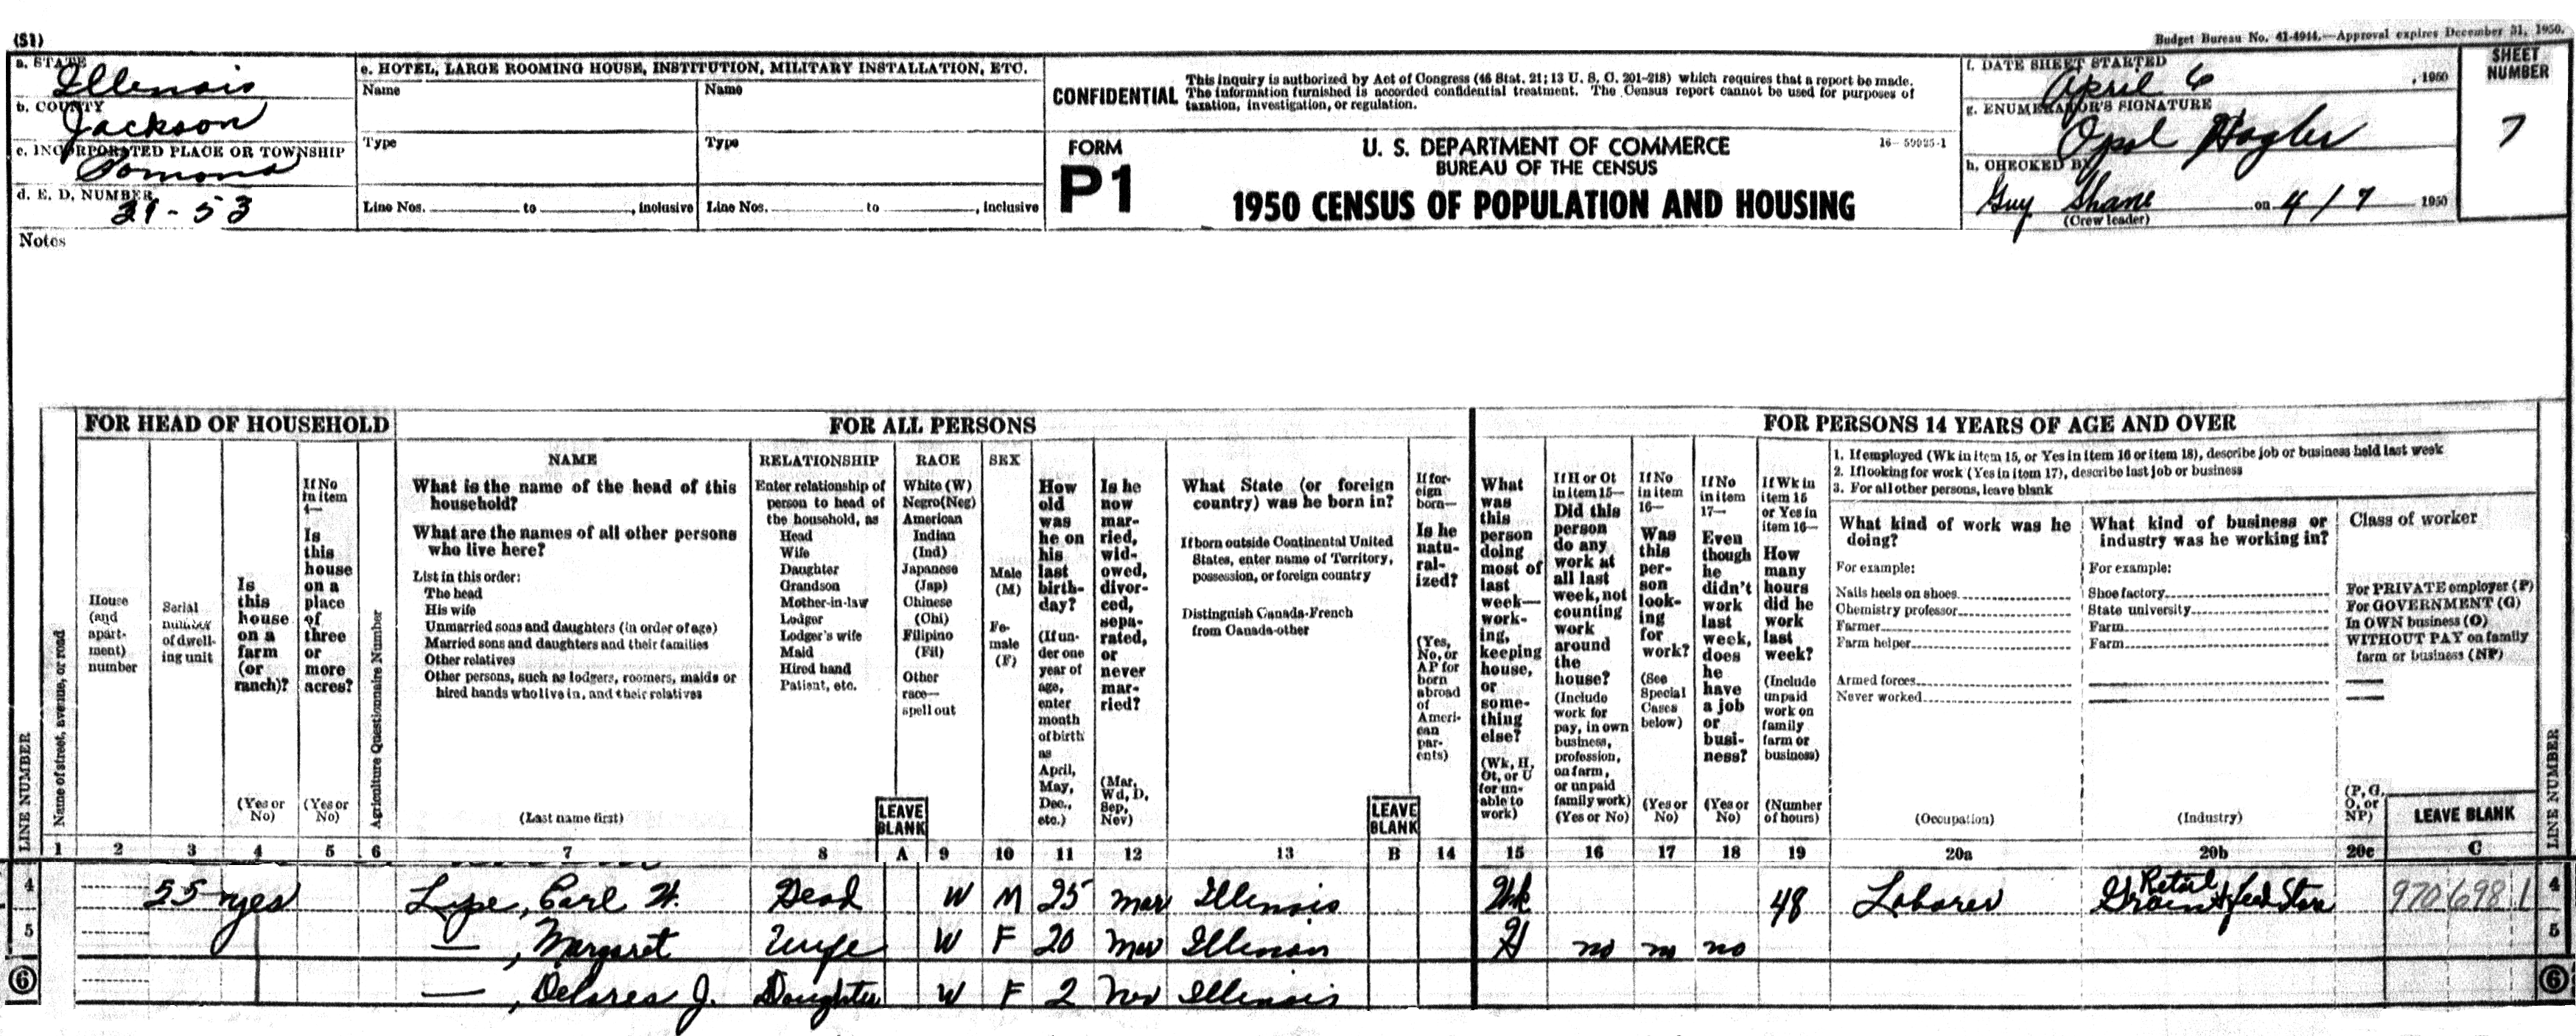 (51)
Budget Bureau No. 41-4944.—Approval expires December 31, 1950.
a. STATE Illinois
b. COUNTY Jackson
c. INCORPORATED PLACE OR TOWNSHIP Pomona
d. E. D. NUMBER 39-53
e. HOTEL, LARGE ROOMING HOUSE, INSTITUTION, MILITARY INSTALLATION, ETC.
Name Name
Type Type
Line Nos. to , inclusive Line Nos. to , inclusive
CONFIDENTIAL
This inquiry is authorized by Act of Congress (46 Stat. 21; 13 U. S. C. 201-218) which requires that a report be made.
The information furnished is accorded confidential treatment. The Census report cannot be used for purposes of
taxation, investigation, or regulation.
FORM
P1
U. S. DEPARTMENT OF COMMERCE
BUREAU OF THE CENSUS
1950 CENSUS OF POPULATION AND HOUSING
16—59925-1
f. DATE SHEET STARTED April 6, 1950
g. ENUMERATOR'S SIGNATURE Opal Hagler
h. CHECKED BY Guy Shane on 4/7 1950
(Crew leader)
SHEET
NUMBER
7
Notes
FOR HEAD OF HOUSEHOLD
FOR ALL PERSONS
FOR PERSONS 14 YEARS OF AGE AND OVER
LINE NUMBER
Name of street, avenue, or road
1
House
(and
apart-
ment)
number
2
Serial
number
of dwell-
ing unit
3
Is
this
house
on a
farm
(or
ranch)?
(Yes or
No)
4
If No
in item
4—
Is
this
house
on a
place
of
three
or
more
acres?
(Yes or
No)
5
Agriculture Questionnaire Number
6
NAME
What is the name of the head of this
household?
What are the names of all other persons
who live here?
List in this order:
The head
His wife
Unmarried sons and daughters (in order of age)
Married sons and daughters and their families
Other relatives
Other persons, such as lodgers, roomers, maids or
hired hands who live in, and their relatives
(Last name first)
7
RELATIONSHIP
Enter relationship of
person to head of
the household, as
Head
Wife
Daughter
Grandson
Mother-in-law
Lodger
Lodger's wife
Maid
Hired hand
Patient, etc.
8
LEAVE
BLANK
A
RACE
White (W)
Negro(Neg)
American
Indian
(Ind)
Japanese
(Jap)
Chinese
(Chi)
Filipino
(Fil)
Other
race—
spell out
9
SEX
Male
(M)
Fe-
male
(F)
10
How
old
was
he on
his
last
birth-
day?
(If un-
der one
year of
age,
enter
month
of birth
as
April,
May,
Dec.,
etc.)
11
Is he
now
mar-
ried,
wid-
owed,
divor-
ced,
sepa-
rated,
or
never
mar-
ried?
(Mar,
Wd, D,
Sep,
Nev)
12
What State (or foreign
country) was he born in?
If born outside Continental United
States, enter name of Territory,
possession, or foreign country
Distinguish Canada-French
from Canada-other
13
LEAVE
BLANK
B
If for-
eign
born—
Is he
natu-
ral-
ized?
(Yes,
No, or
AP for
born
abroad
of
Ameri-
can
par-
ents)
14
What
was
this
person
doing
most of
last
week—
work-
ing,
keeping
house,
or
some-
thing
else?
(Wk, H,
Ot, or U
for un-
able to
work)
15
If H or Ot
in item 15—
Did this
person
do any
work at
all last
week, not
counting
work
around
the
house?
(Include
work for
pay, in own
business,
profession,
on farm,
or unpaid
family work)
(Yes or No)
16
If No
in item
16—
Was
this
per-
son
look-
ing
for
work?
(See
Special
Cases
below)
(Yes or
No)
17
If No
in item
17—
Even
though
he
didn't
work
last
week,
does
he
have
a job
or
busi-
ness?
(Yes or
No)
18
If Wk in
item 15
or Yes in
item 16—
How
many
hours
did he
work
last
week?
(Include
unpaid
work on
family
farm or
business)
(Number
of hours)
19
1. If employed (Wk in item 15, or Yes in item 16 or item 18), describe job or business held last week
2. If looking for work (Yes in item 17), describe last job or business
3. For all other persons, leave blank
What kind of work was he
doing?
For example:
Nails heels on shoes
Chemistry professor
Farmer
Farm helper
Armed forces
Never worked
(Occupation)
20a
What kind of business or
industry was he working in?
For example:
Shoe factory
State university
Farm
Farm
(Industry)
20b
Class of worker
For PRIVATE employer (P)
For GOVERNMENT (G)
In OWN business (O)
WITHOUT PAY on family
farm or business (NP)
(P, G,
O, or
NP)
20c
LEAVE BLANK
C
LINE NUMBER
4 55 yes Lipe, Earl H. Head W M 25 mar Illinois Wk 48 Laborer Retail Grain & feed Store 970 698 1 4
5 —, Margaret Wife W F 20 Mar Illinois H no no no 5
6 —, Delores J. Daughter W F 2 Nev Illinois 6